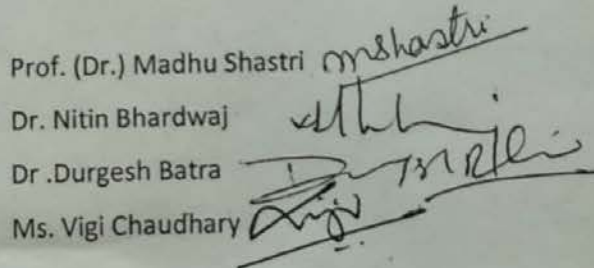 Prof. (Dr.) Madhu Shastri mshastri
Dr. Nitin Bhardwaj
Dr .Durgesh Batra
Ms. Vigi Chaudhary